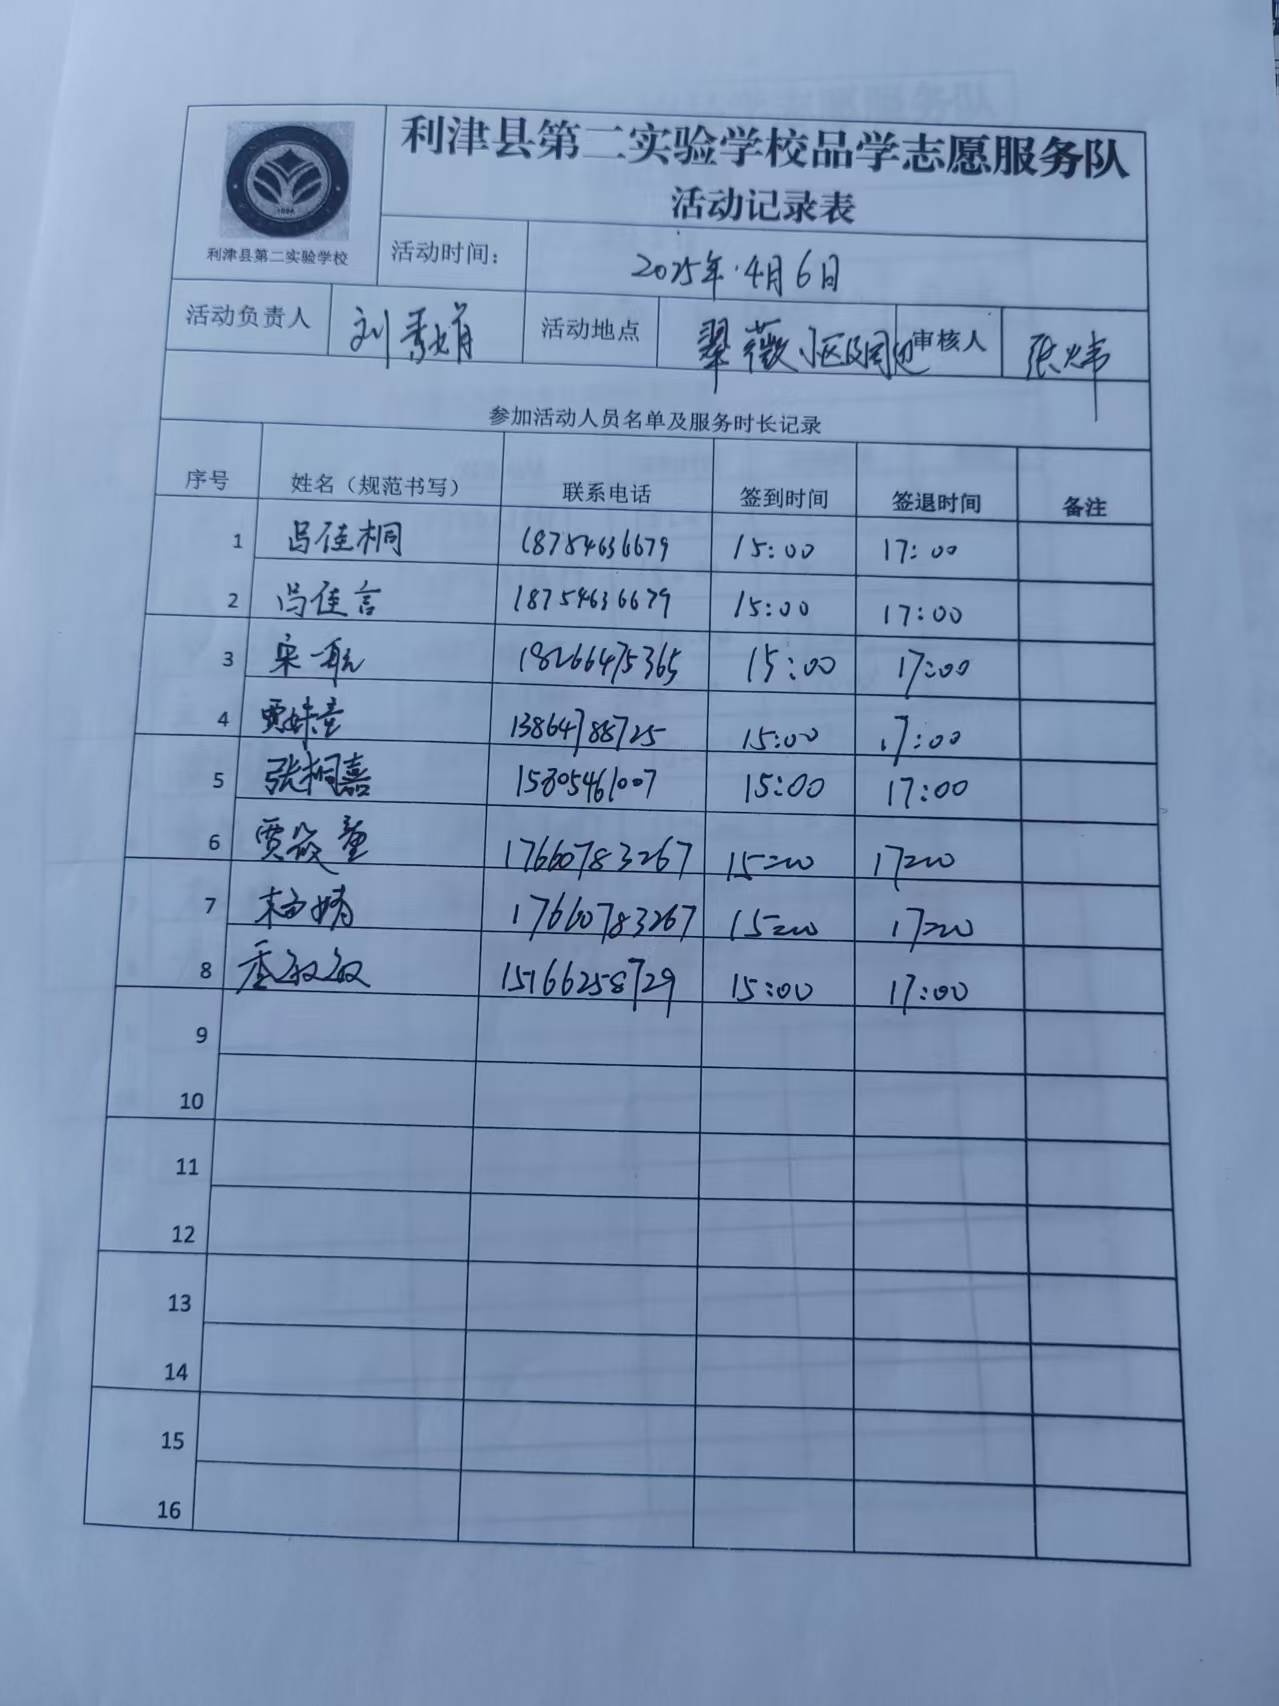 利津县第二实验学校品学志愿服务队
活动记录表
1994
利津县第二实验学校
活动时间： 2025年.4月6日
活动负责人 刘秀娟 活动地点 翠薇小区及周边 审核人 张炜
参加活动人员名单及服务时长记录
序号 姓名（规范书写） 联系电话 签到时间 签退时间 备注
1 吕佳桐 18754636679 15:00 17:00
2 吕佳言 18754636679 15:00 17:00
3 宋一航 18266475365 15:00 17:00
4 贾姝童 13864788725 15:00 17:00
5 张桐嘉 15805461007 15:00 17:00
6 贾筱童 17660783267 15:00 17:00
7 杨婧 17660783267 15:00 17:00
8 敏敏 15166258729 15:00 17:00
9
10
11
12
13
14
15
16